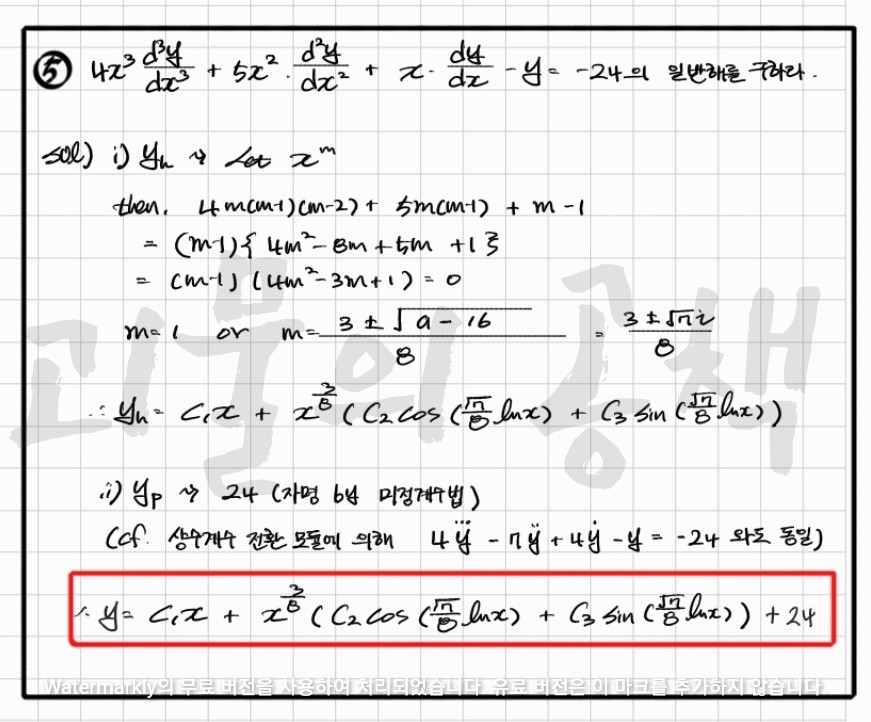 ⑤ 4x³ d³y/dx³ + 5x² · d²y/dx² + x · dy/dx - y = -24 의 일반해를 구하라.
sol) i) yₕ ⇝ Let xᵐ
then. 4m(m-1)(m-2) + 5m(m-1) + m - 1
= (m-1){ 4m² - 8m + 5m + 1 }
= (m-1) (4m² - 3m + 1) = 0
m = 1 or m = (3 ± √(9 - 16))/8 = (3 ± √7 i)/8
∴ yₕ = C₁x + x^(3/8) ( C₂ cos (√7/8 lnx) + C₃ sin (√7/8 lnx) )
ii) yₚ ⇝ 24 (자명 by 미정계수법)
(cf. 상수계수 전환 모듈에 의해 4y⃛ - 7ÿ + 4ẏ - y = -24 와도 동일)
∴ y = C₁x + x^(3/8) ( C₂ cos (√7/8 lnx) + C₃ sin (√7/8 lnx) ) + 24
괴물의 공책
Watermarkly의 무료 버전을 사용하여 처리되었습니다. 유료 버전은 이 마크를 추가하지 않습니다.